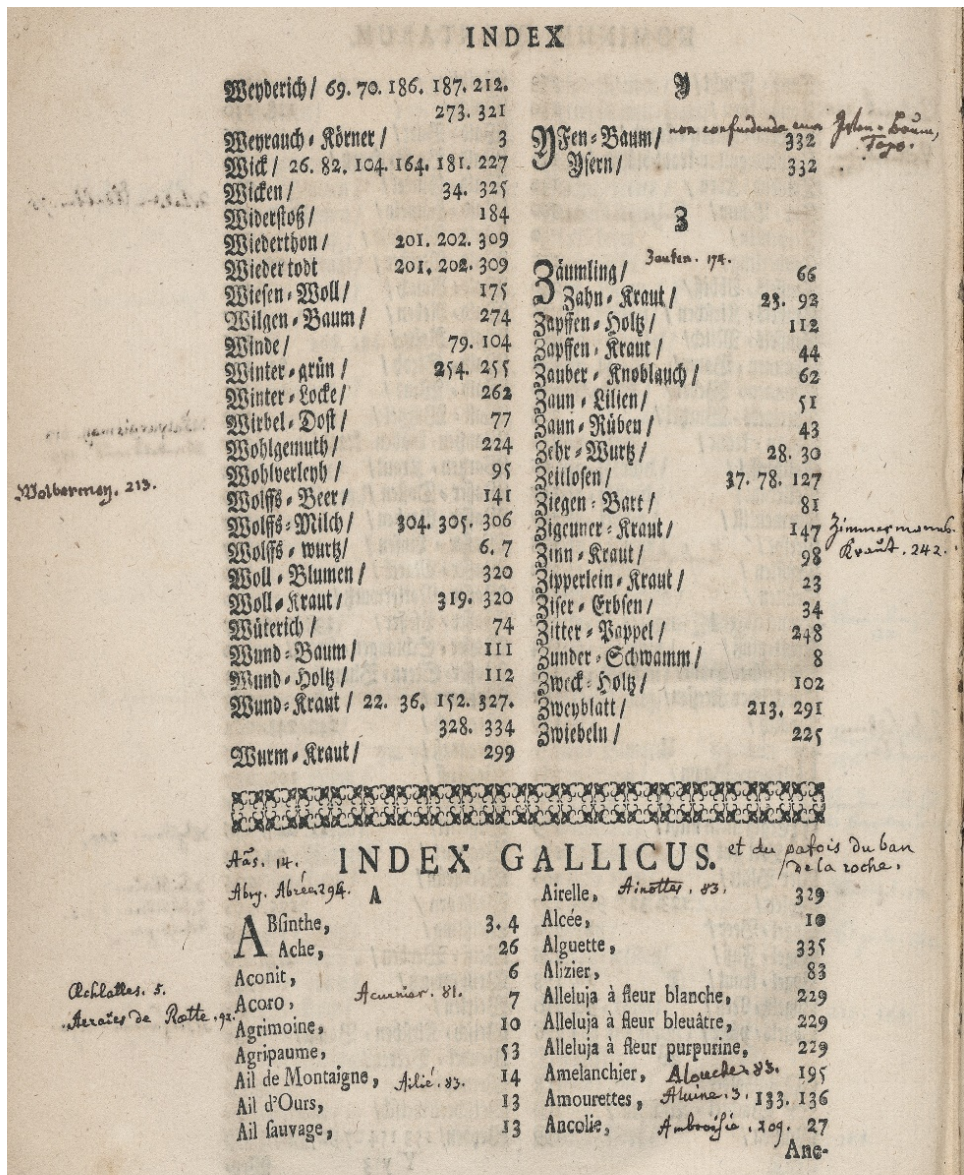 INDEX
Weyderich / 69. 70. 186. 187. 212.
273. 321
Weyrauch-Körner / 3
Wick / 26. 82. 104. 164. 181. 227
Wicken / 34. 325
Widerstoß / 184
Wiederthon / 201. 202. 309
Wieder todt 201. 202. 309
Wiesen-Woll / 175
Wilgen-Baum / 274
Winde / 79. 104
Winter-grün / 254. 255
Winter-Locke / 262
Wirbel-Dost / 77
Wohlgemuth / 224
Wohlverleyh / 95
Wolbermey. 213.
Wolffs-Beer / 141
Wolffs-Milch / 304. 305. 306
Wolffs-wurtz / 6. 7
Woll-Blumen / 320
Woll-Kraut / 319. 320
Wüterich / 74
Wund-Baum / 111
Wund-Holtz / 112
Wund-Kraut / 22. 36. 152. 327.
328. 334
Wurm-Kraut / 299
Y
YFen-Baum / 332 non confundenda cum Iften-Boum,
Ysern / 332
Z
Zauken. 174.
Zäumling / 66
Zahn-Kraut / 23. 92
Zapffen-Holtz / 112
Zapffen-Kraut / 44
Zauber-Knoblauch / 62
Zaun-Lilien / 51
Zaun-Rüben / 43
Zehr-Wurtz / 28. 30
Zeitlosen / 37. 78. 127
Ziegen-Bart / 81
Zigeuner-Kraut / 147
Zimmermanns-
Kraut. 242.
Zinn-Kraut / 98
Zipperlein-Kraut / 23
Ziser-Erbsen / 34
Zitter-Pappel / 248
Zunder-Schwamm / 8
Zweck-Holtz / 102
Zweyblatt / 213. 291
Zwiebeln / 225
INDEX GALLICUS. et du patois du ban
de la roche.
Aäs. 14.
Abry. Abrée 294.
A
ABsinthe, 3. 4
Ache, 26
Aconit, 6
Achlattes. 5.
Acoro, 7
Acurnier. 81.
Aeraies de Rotte. 92.
Agrimoine, 10
Agripaume, 53
Ail de Montaigne, 14
Ailié. 83.
Ail d'Ours, 13
Ail sauvage, 13
Airelle, 329
Ainottes. 83.
Alcée, 10
Alguette, 335
Alizier, 83
Alleluja à fleur blanche, 229
Alleluja à fleur bleuâtre, 229
Alleluja à fleur purpurine, 229
Amelanchier, 195
Alouche. 83.
Amourettes, 133. 136
Aluine. 3.
Ancolie, 27
Ambroisie. 209.
Ane-